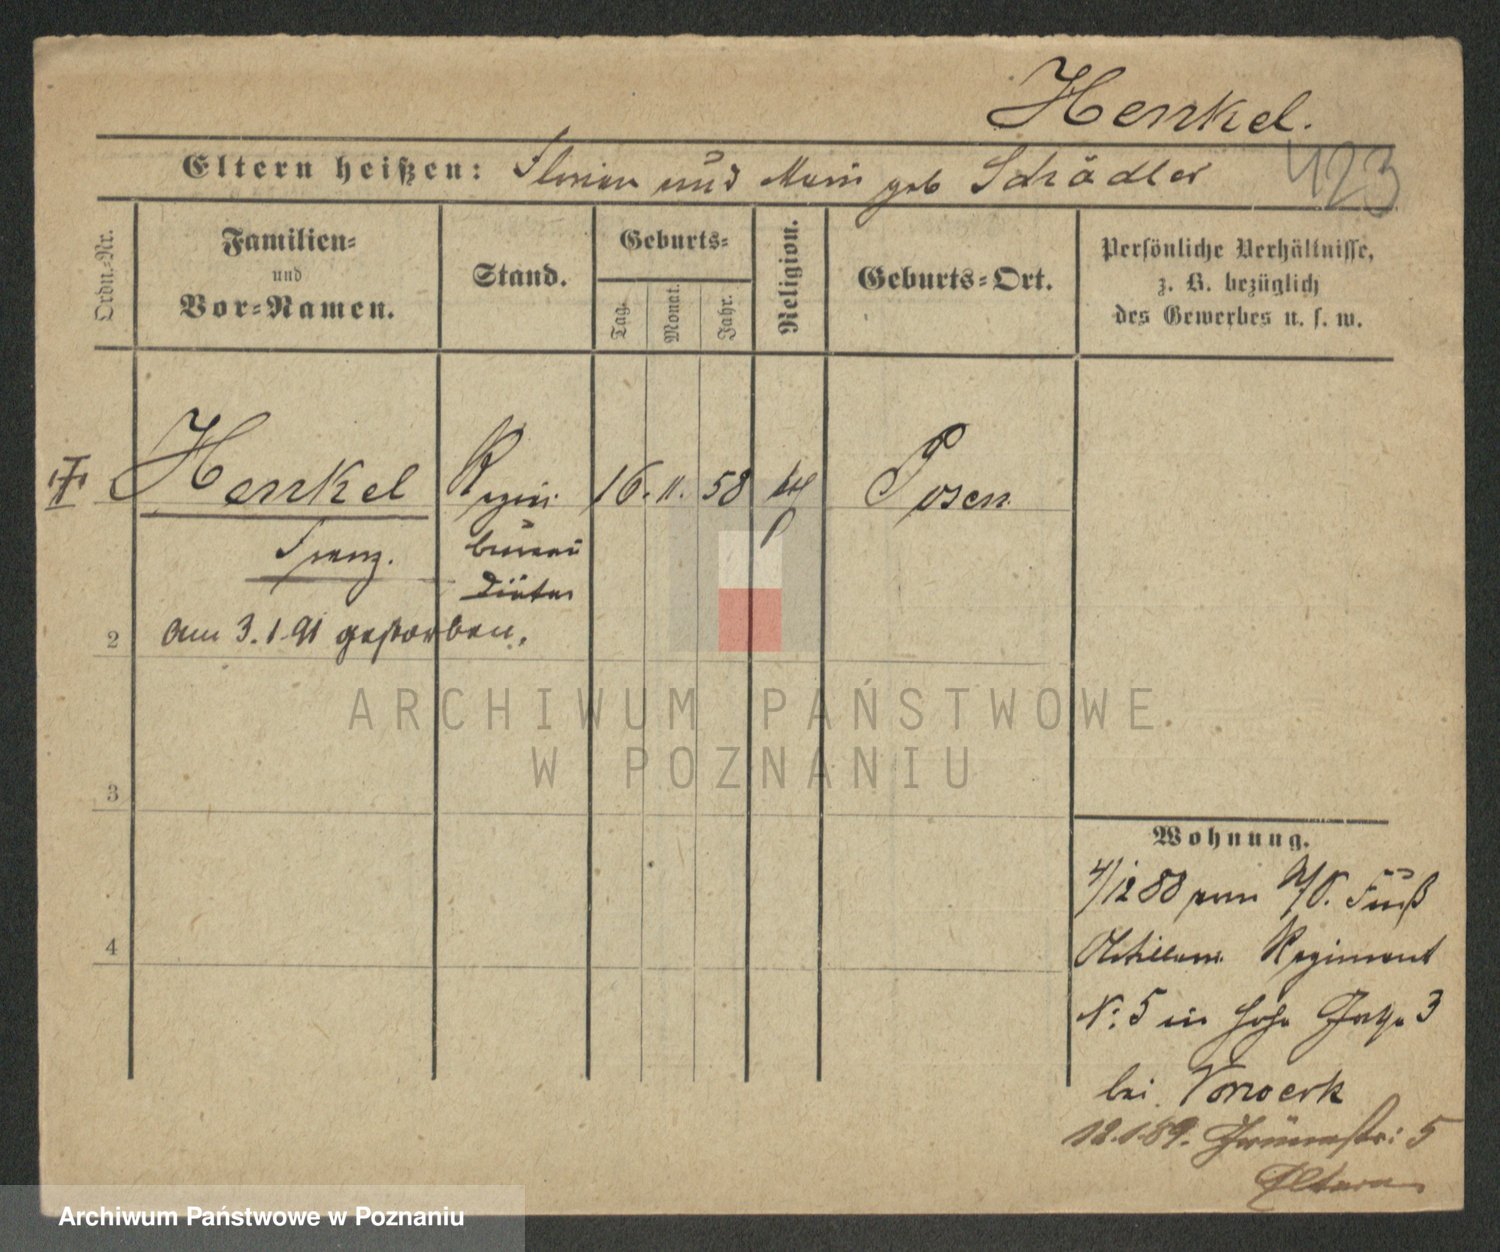 Henkel.
423
Eltern heißen: Florian und Marie geb Schädler
Ordn.-Nr.
Familien-
und
Vor-Namen.
Stand.
Geburts-
Tag.
Monat.
Jahr.
Religion.
Geburts-Ort.
Persönliche Verhältnisse,
z. B. bezüglich
des Gewerbes u. s. w.
Henkel
16. 11. 58
Posen
Franz.
büreau
Diätar
2
am 3. 1. 91 gestorben.
3
4
Wohnung.
4/12 88 vom Fuß
Artillerie Regiment
N: 5 in hohe Gasse 3
bei Vorwerk
12.1.89. Grünestr: 5
Eltern
ARCHIWUM PAŃSTWOWE
W POZNANIU
Archiwum Państwowe w Poznaniu